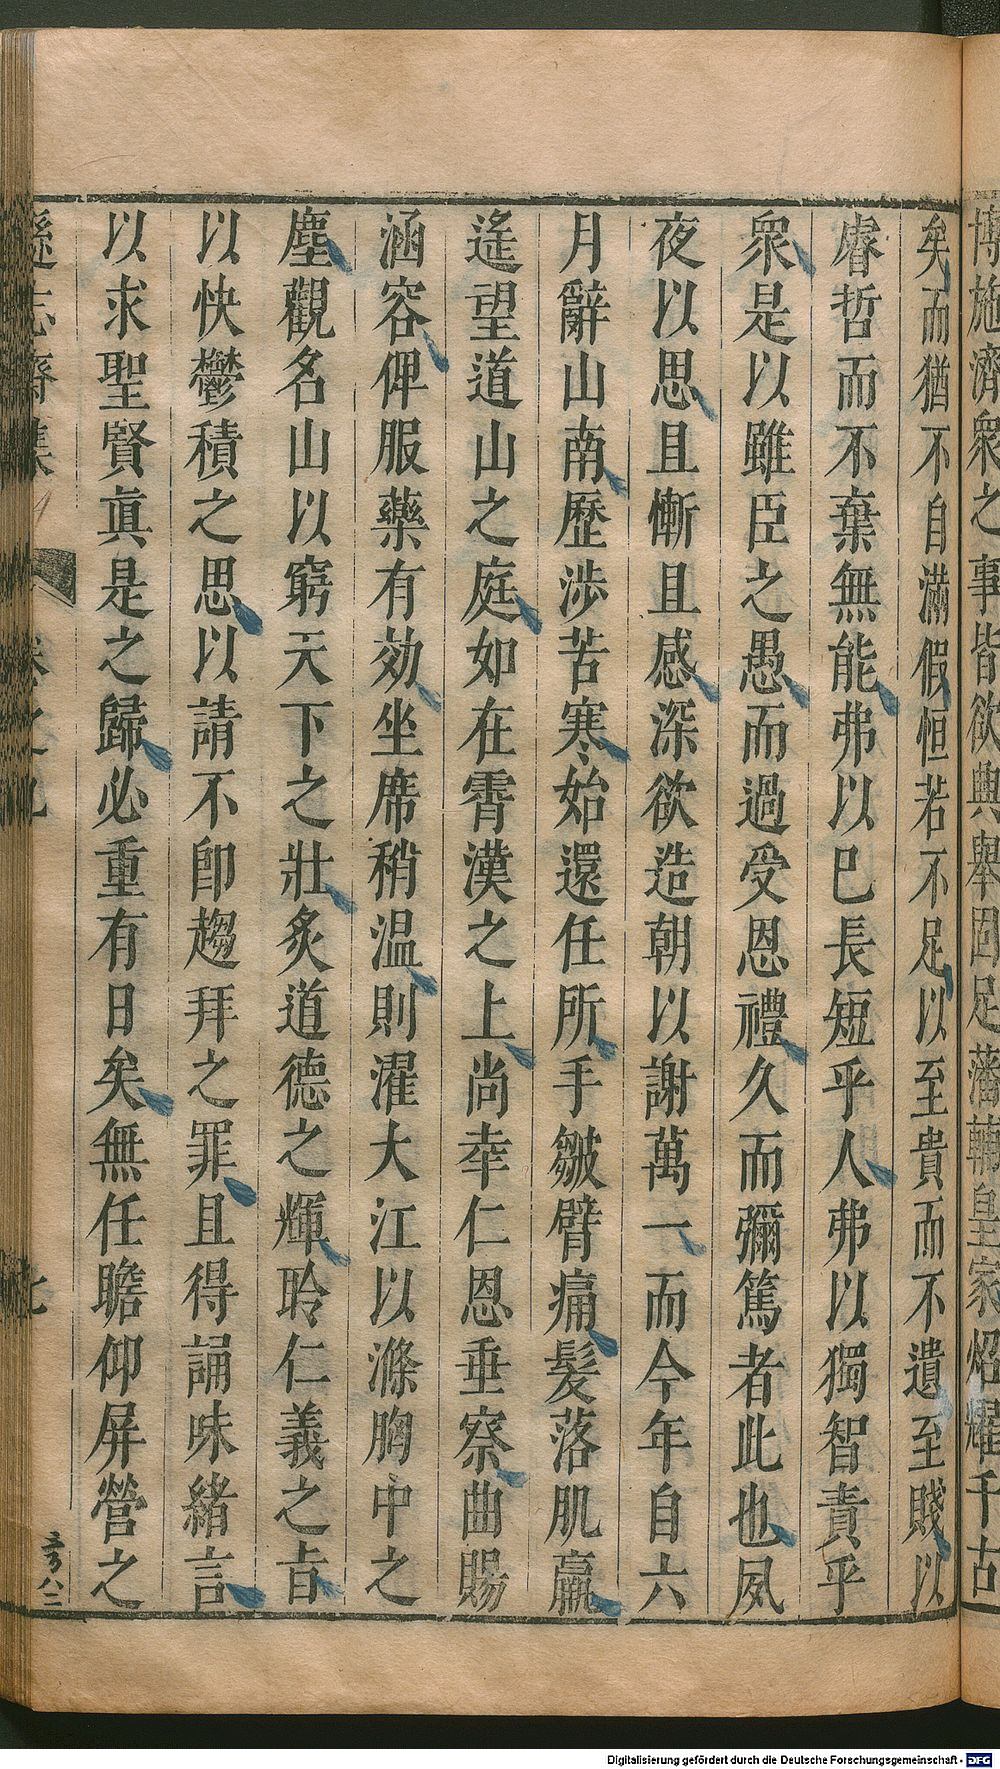 博施濟衆之事皆欲典舉固足藩輔皇家炤耀千古
矣而猶不自滿假恒若不足以至貴而不遺至賤以
睿哲而不棄無能弗以巳長短乎人弗以獨智責乎
衆是以雖臣之愚而過受恩禮久而彌篤者此也夙
夜以思且慚且感深欲造朝以謝萬一而今年自六
月辭山南歷涉苦寒始還任所手皴臂痛髮落肌羸
遙望道山之庭如在霄漢之上尚幸仁恩垂察曲賜
涵容俾服藥有効坐席稍溫則濯大江以滌胸中之
塵觀名山以窮天下之壯炙道德之輝聆仁義之㫖
以快鬱積之思以請不卽趨拜之罪且得誦味緒言
以求聖賢眞是之歸必重有日矣無任瞻仰屏營之
遜志齋集
卷之九
Digitalisierung gefördert durch die Deutsche Forschungsgemeinschaft - DFG